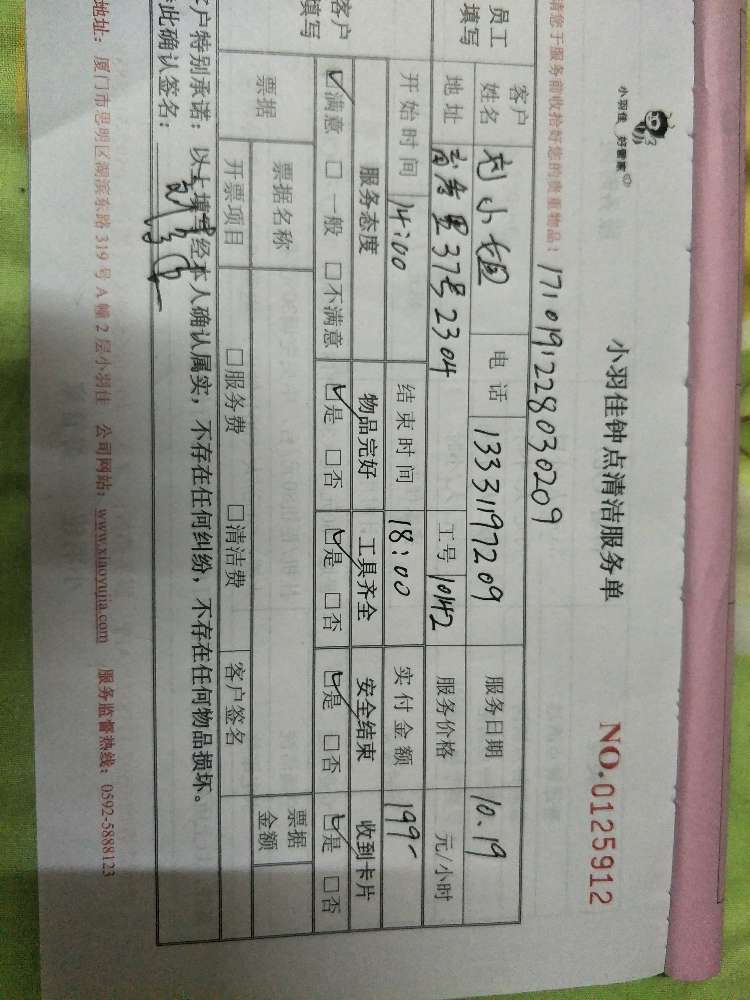 小羽佳 好管家
小羽佳钟点清洁服务单
NO.0125912
请您于服务前收拾好您的贵重物品！
1710191228030209
员工
填写
客户
姓名
刘小姐
电话
13331197209
服务日期
10.19
地址
37号2304
工号
10142
服务价格
元/小时
开始时间
14:00
结束时间
18:00
实付金额
199-
客户
填写
服务态度
物品完好
工具齐全
安全结束
收到卡片
☑满意 □一般 □不满意
☑是 □否
☑是 □否
☑是 □否
☑是 □否
票据
票据名称
票据
金额
开票项目
□服务费 □清洁费
客户签名
客户特别承诺：以上填写经本人确认属实，不存在任何纠纷，不存在任何物品损坏。
此确认签名：
地址：厦门市思明区湖滨东路319号A幢2层小羽佳 公司网站：www.xiaoyujia.com 服务监督热线：0592-5888123